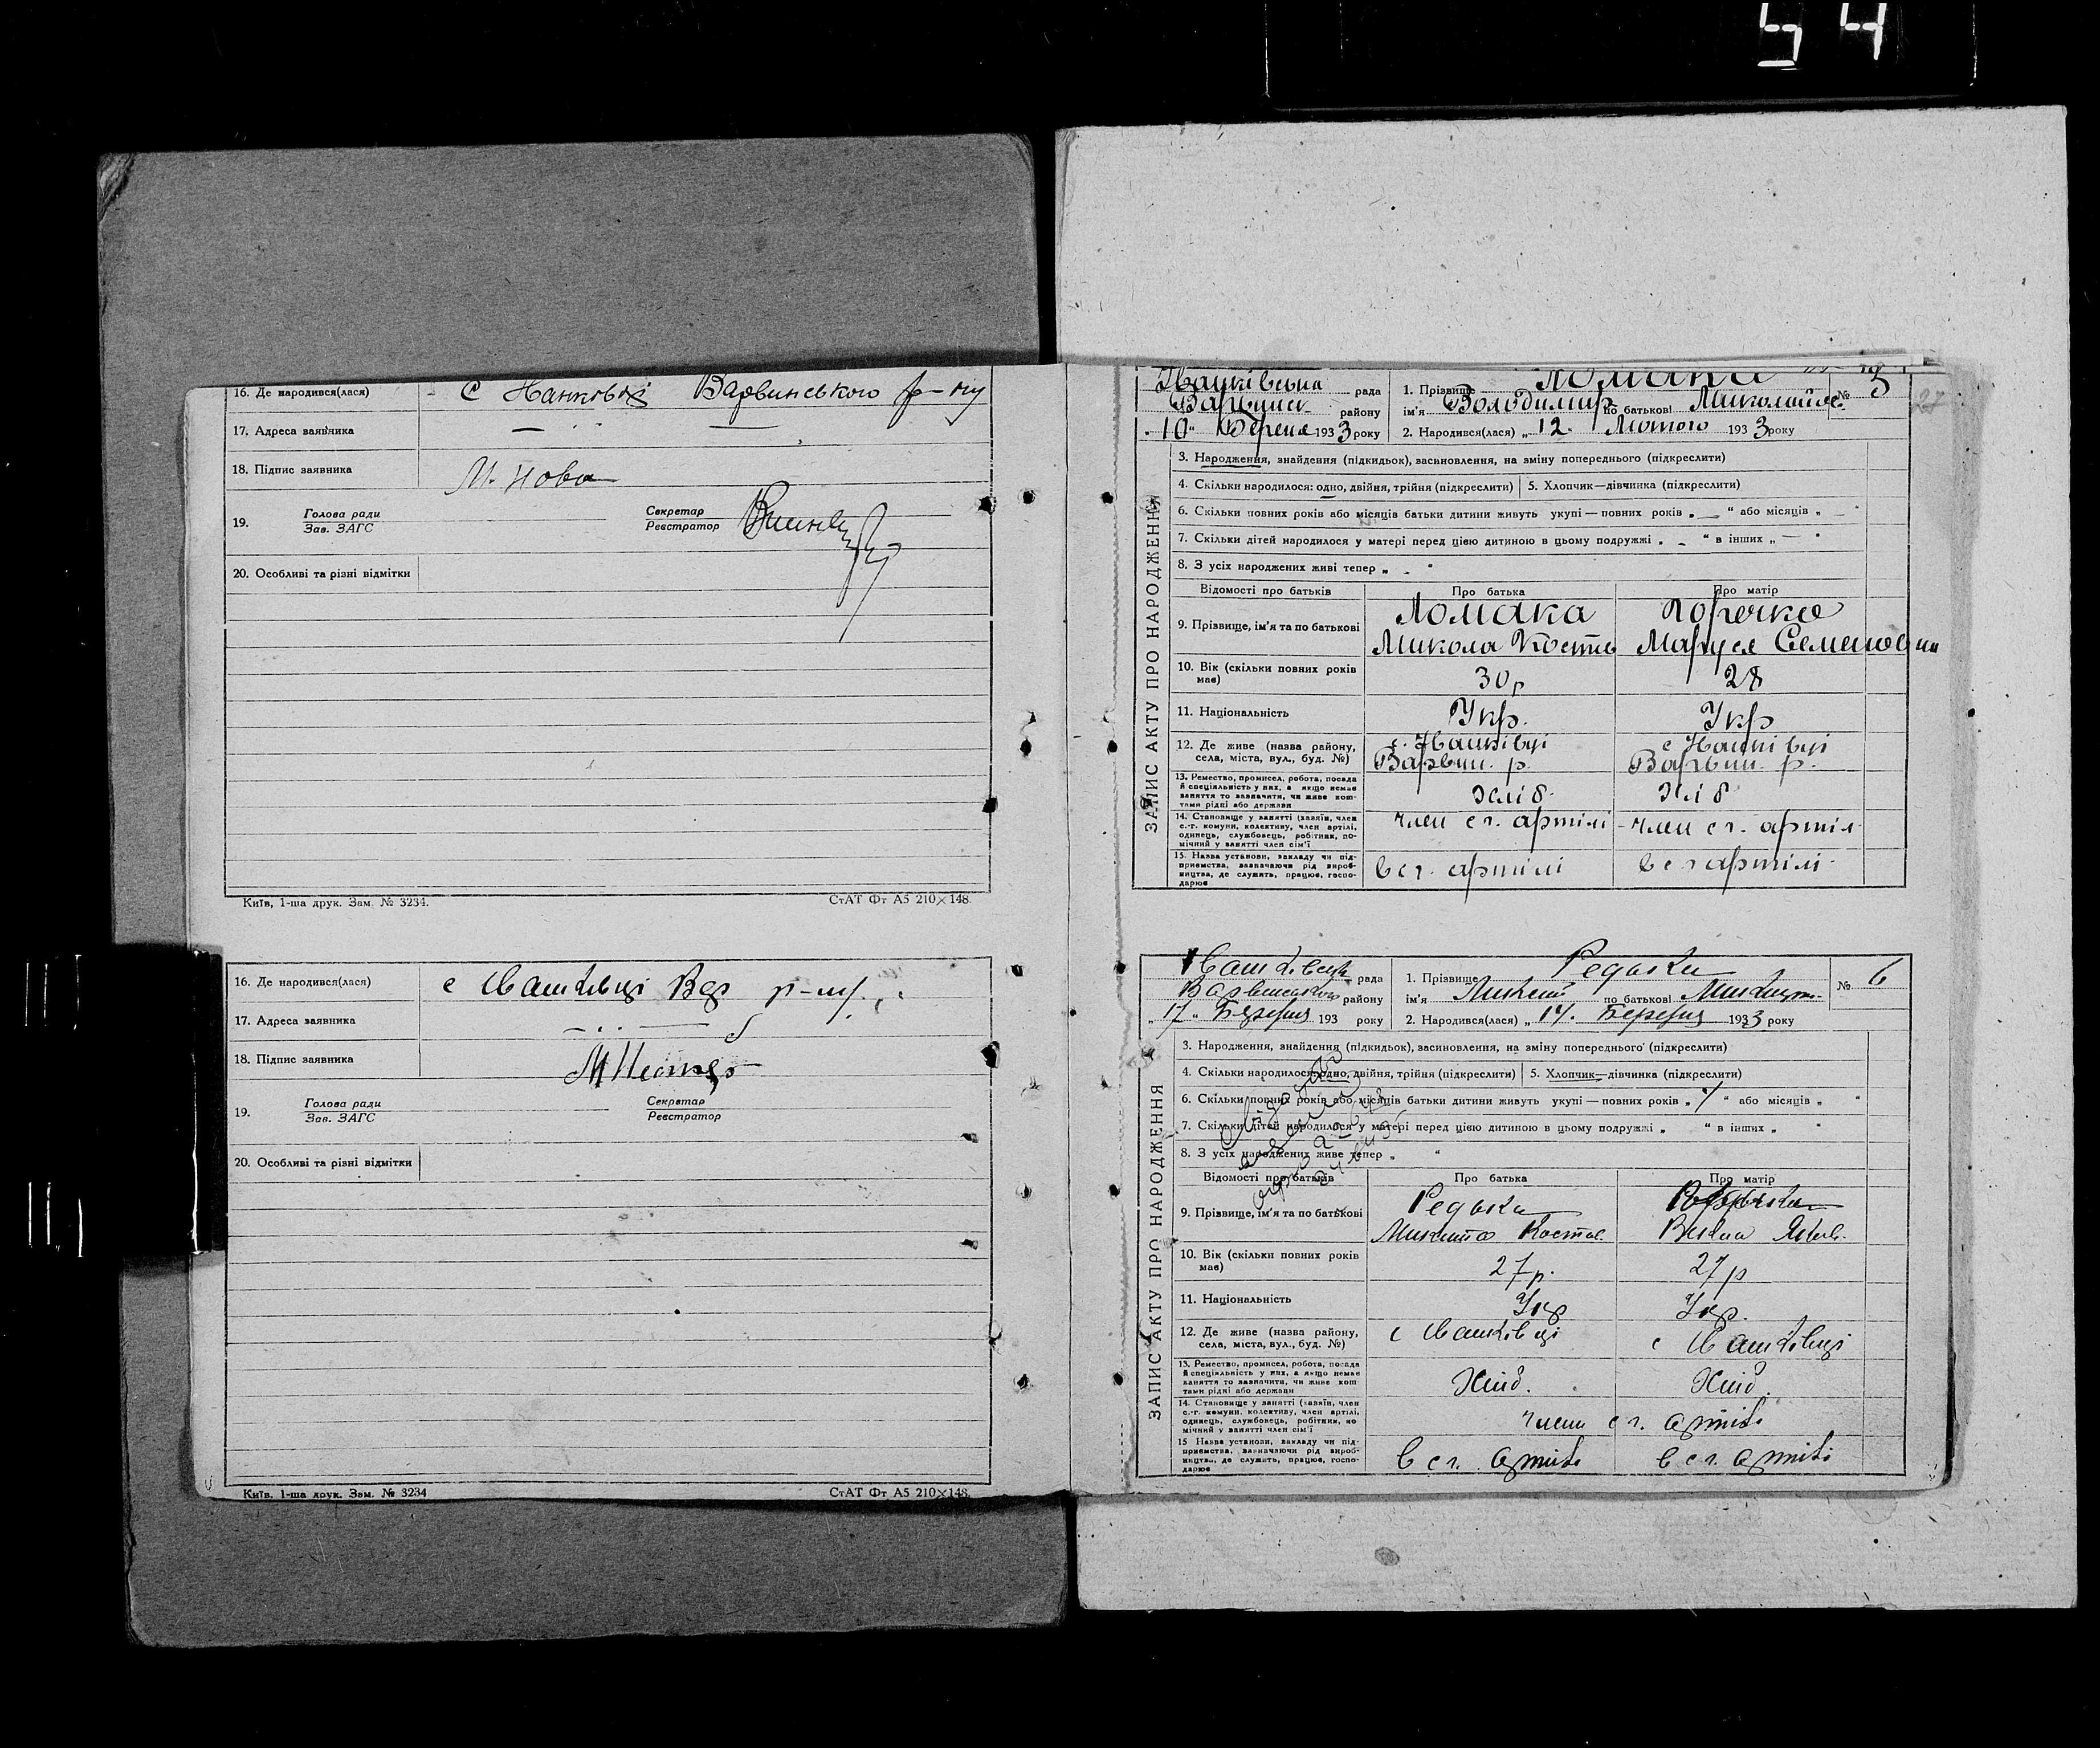 16. Де народився(лася) с Варвинського р-ну
17. Адреса заявника — ·· —
18. Підпис заявника М. Нова
19. Голова ради
Зав. ЗАГС
Секретар
Реєстратор
20. Особливі та різні відмітки
Київ, 1-ша друк. Зам. № 3234.
СтАТ Фт А5 210×148.
16. Де народився(лася) с Івашківці Вар р-ну
17. Адреса заявника — ·· —
18. Підпис заявника
19. Голова ради
Зав. ЗАГС
Секретар
Реєстратор
20. Особливі та різні відмітки
Київ, 1-ша друк. Зам. № 3234
СтАТ Фт А5 210×148.
рада
району
„10" 1933 року
1. Прізвище Ломака
ім'я Володимир по батькові
2. Народився(лася) „12. Лютого 1933 року
№ 5
27
ЗАПИС АКТУ ПРО НАРОДЖЕННЯ
3. Народження, знайдення (підкидьок), засиновлення, на зміну попереднього (підкреслити)
4. Скільки народилося: одно, двійня, трійня (підкреслити) 5. Хлопчик—дівчинка (підкреслити)
6. Скільки повних років або місяців батьки дитини живуть укупі — повних років „ — " або місяців „ — "
7. Скільки дітей народилося у матері перед цією дитиною в цьому подружжі „ - " в інших „ — "
8. З усіх народжених живі тепер „ - "
Відомості про батьків Про батька Про матір
9. Прізвище, ім'я та по батькові Ломака
Микола Кость Маруся Семеновни
10. Вік (скільки повних років має) 30р 28
11. Національність Укр. Укр
12. Де живе (назва району, села, міста, вул., буд. №)
Варвин. р. Варвин. р.
13. Ремество, промисел, робота, посада й спеціяльність у них, а якщо немає заняття то зазначити, чи живе коштами рідні або держави Хліб. Хліб
14. Становище у занятті (хазяїн, член с.-г. комуни, колективу, член артілі, одинець, службовець, робітник, помічний у занятті член сім'ї член с г. артілі член с г. артіл
15. Назва установи, закладу чи підприємства, зазначаючи рід виробництва, де служать, працює, господарює в с г. артілі в с г артілі
рада
Варвинського району
„17" Березня 193 року
1. Прізвище Редька
ім'я по батькові
2. Народився(лася) „14. Березня 1933 року
№ 6
ЗАПИС АКТУ ПРО НАРОДЖЕННЯ
3. Народження, знайдення (підкидьок), засиновлення, на зміну попереднього (підкреслити)
4. Скільки народилося: одно, двійня, трійня (підкреслити) 5. Хлопчик—дівчинка (підкреслити)
6. Скільки повних років або місяців батьки дитини живуть укупі — повних років „ " або місяців „ "
7. Скільки дітей народилося у матері перед цією дитиною в цьому подружжі „ " в інших „ "
8. З усіх народжених живе тепер „ "
Відомості про батьків Про батька Про матір
9. Прізвище, ім'я та по батькові Редька
Микита Костьов.
10. Вік (скільки повних років має) 27 р. 27 р
11. Національність Укр Укр.
12. Де живе (назва району, села, міста, вул., буд. №) с Івашківці с Івашківці
13. Ремество, промисел, робота, посада й спеціяльність у них, а якщо немає заняття то зазначити, чи живе коштами рідні або держави Хліб. Хліб.
14. Становище у занятті (хазяїн, член с.-г. комуни, колективу, член артілі, одинець, службовець, робітник, помічний у занятті член сім'ї члени с г. артілі
15 Назва установи, закладу чи підприємства, зазначаючи рід виробництва, де служать, працює, господарює в с г. артілі в с г. артілі